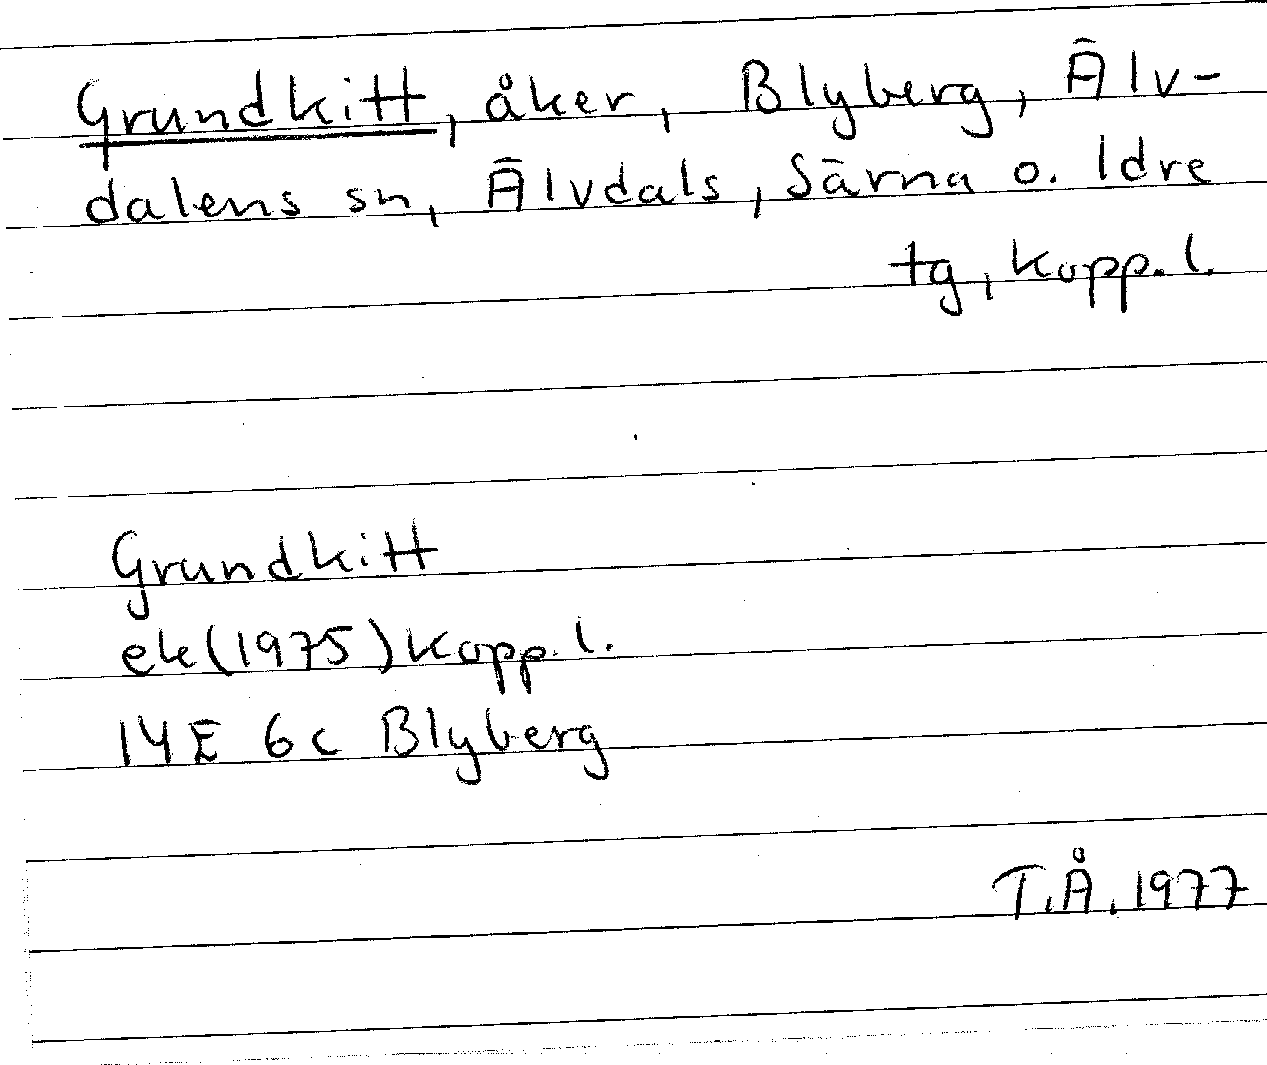 Grundkitt, åker, Blyberg, Älv-
dalens sn, Älvdals, Särna o. Idre
tg, Kopp. l.
Grundkitt
ek (1975) Kopp. l.
14E 6c Blyberg
T.Å. 1977